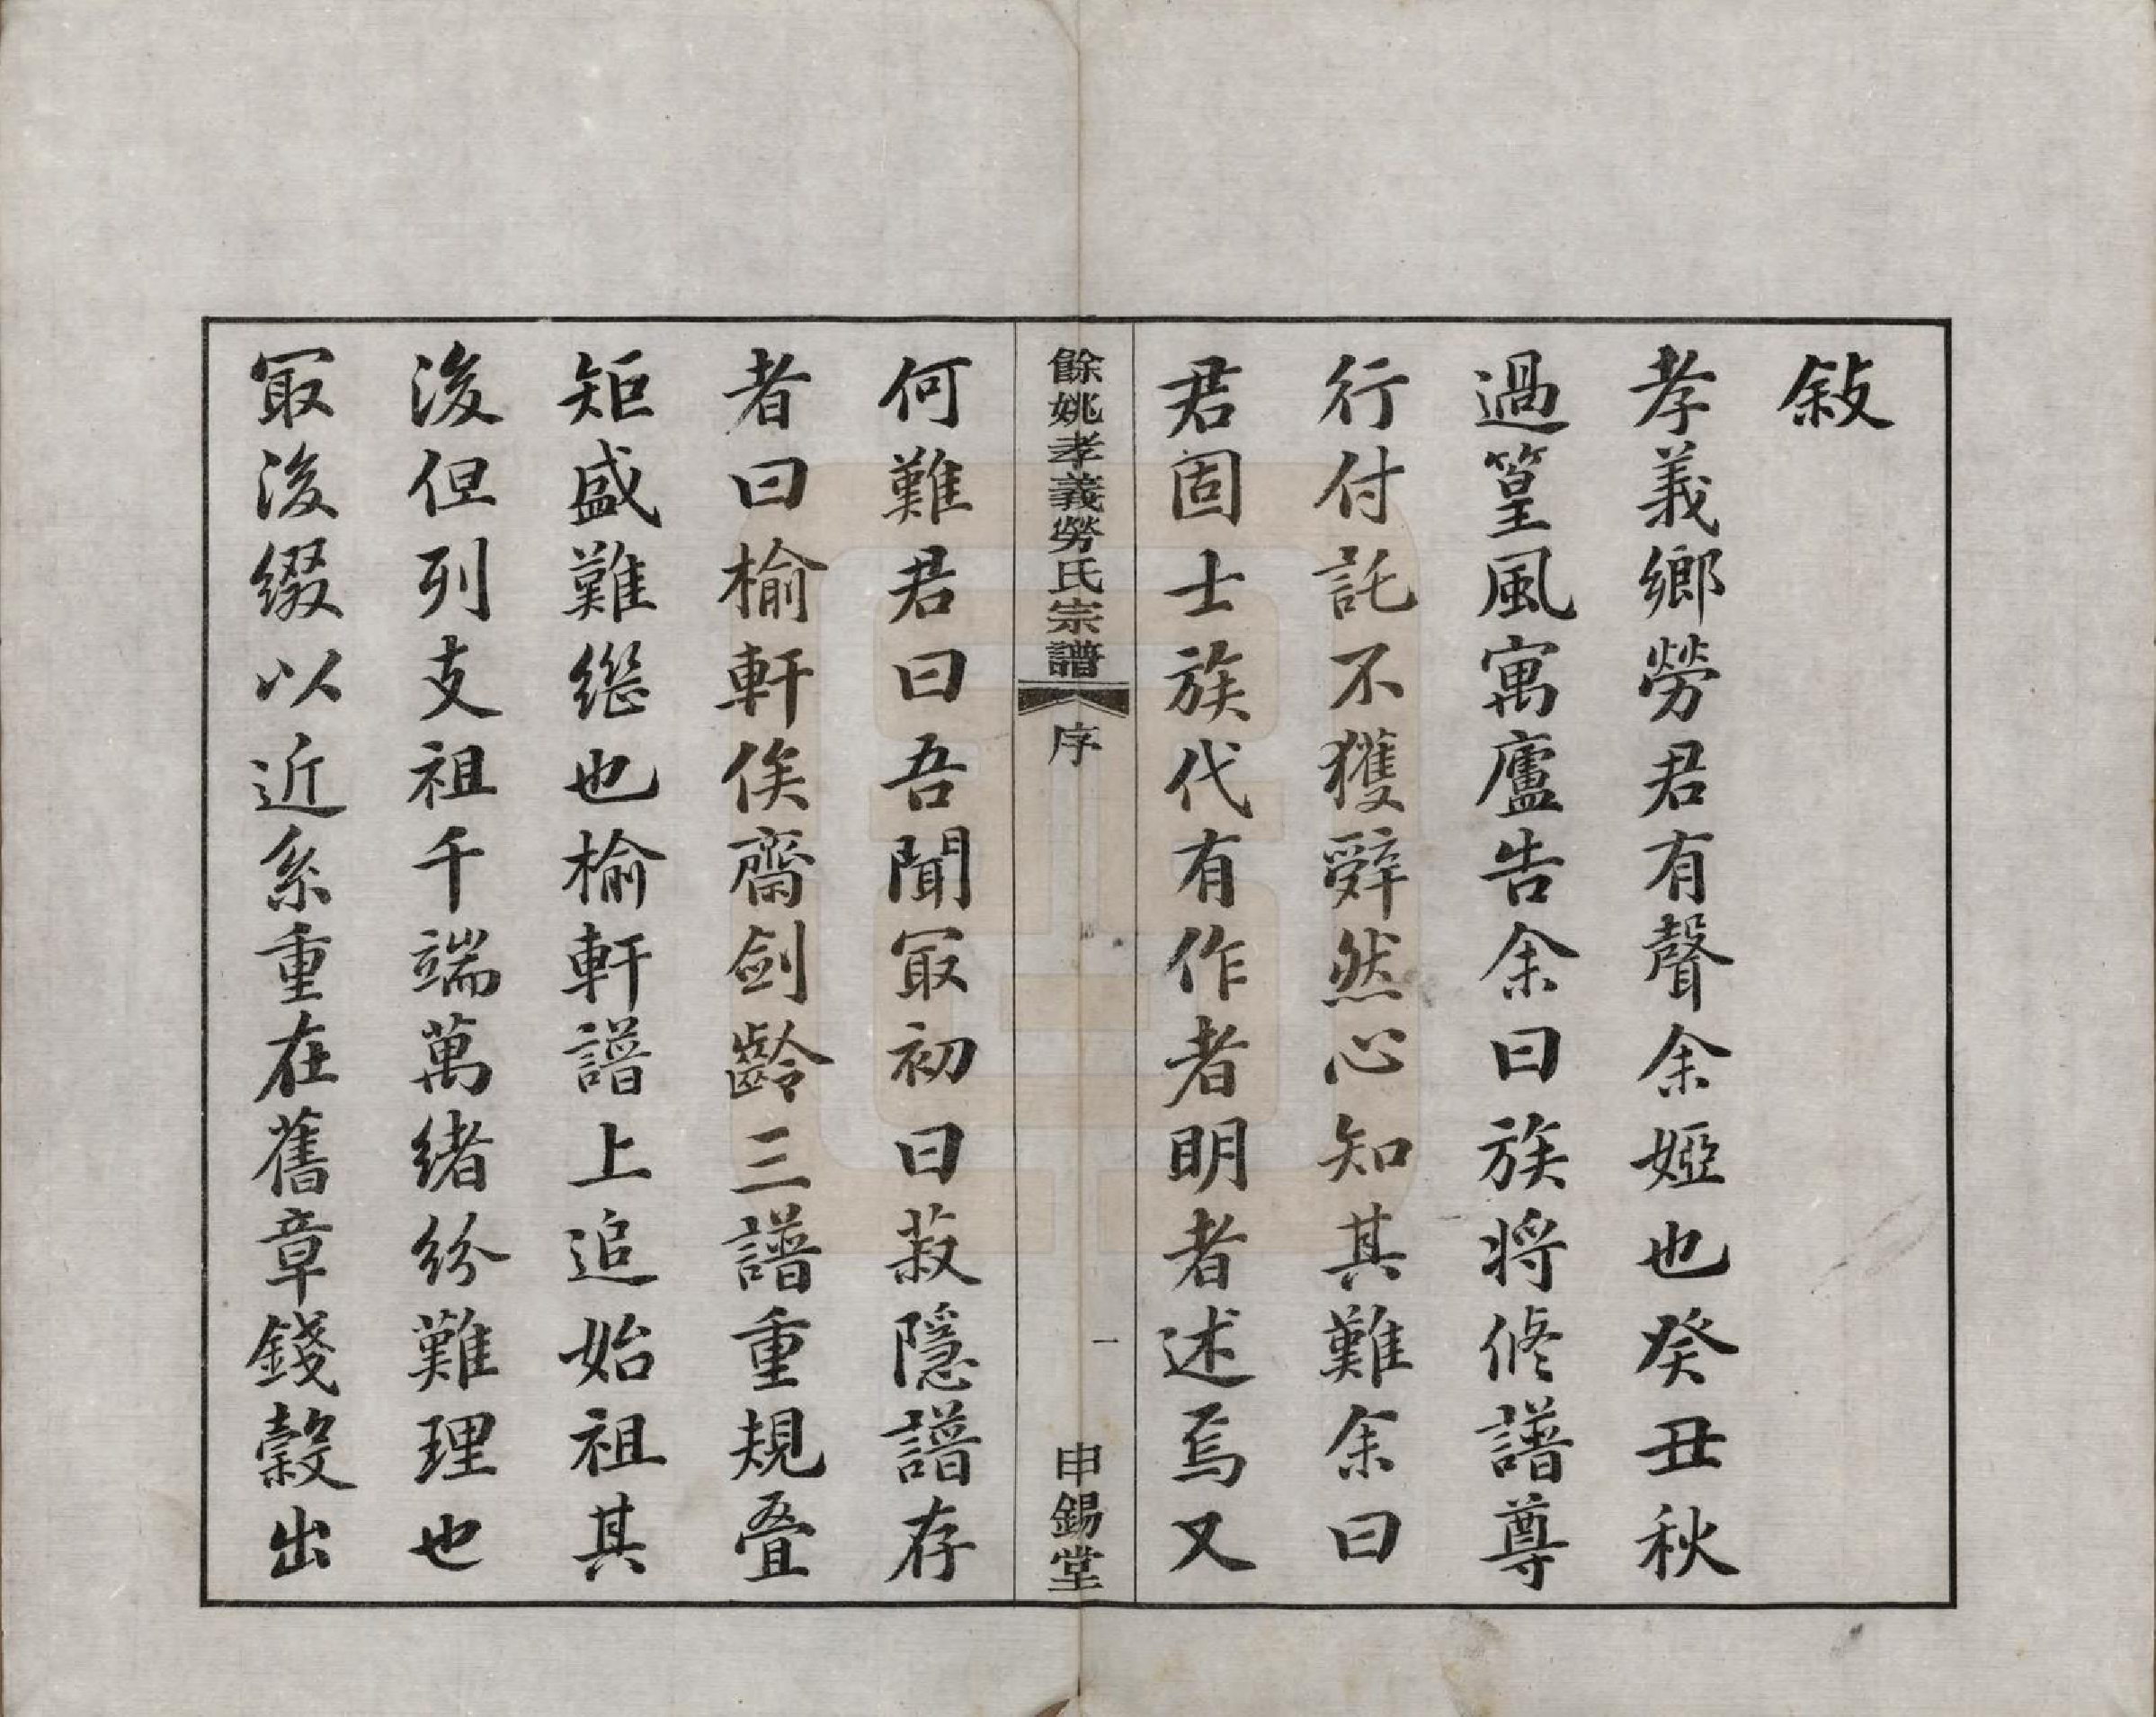 敍
孝義鄉勞君有聲余婭也癸丑秋
過篁風寓廬告余曰族將脩譜尊
行付託不獲辭然心知其難余曰
君固士族代有作者明者述焉又
餘姚孝義勞氏宗譜
序
一
申錫堂
何難君曰吾聞冣初曰菽隱譜存
者曰榆軒俟齋劍齡三譜重規疊
矩盛難繼也榆軒譜上追始祖其
後但列支祖千端萬緒紛難理也
冣後綴以近系重在舊章錢穀出